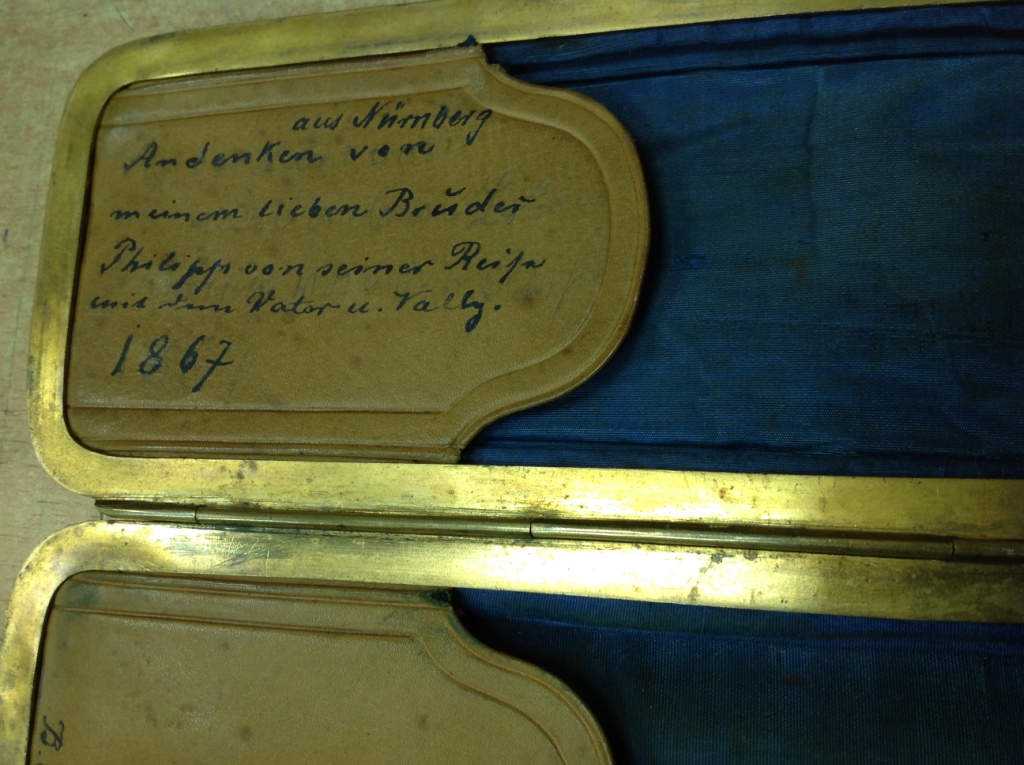 aus Nürnberg
Andenken von
meinem lieben Brŭder
Philipp von seiner Reise
mit dem Vater u. Vally.
1867